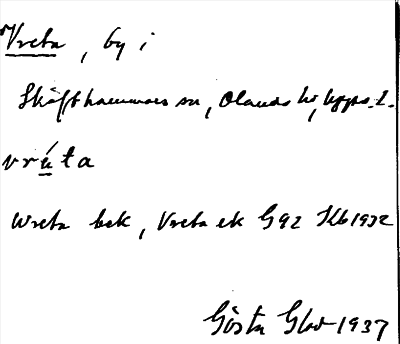 Vreta, by i
Skäfthammars sn, Olands hd, Upps. l.
vrèta
Wreta bek, Vreta ek G 92 Kb 1932
Gösta Glad 1937